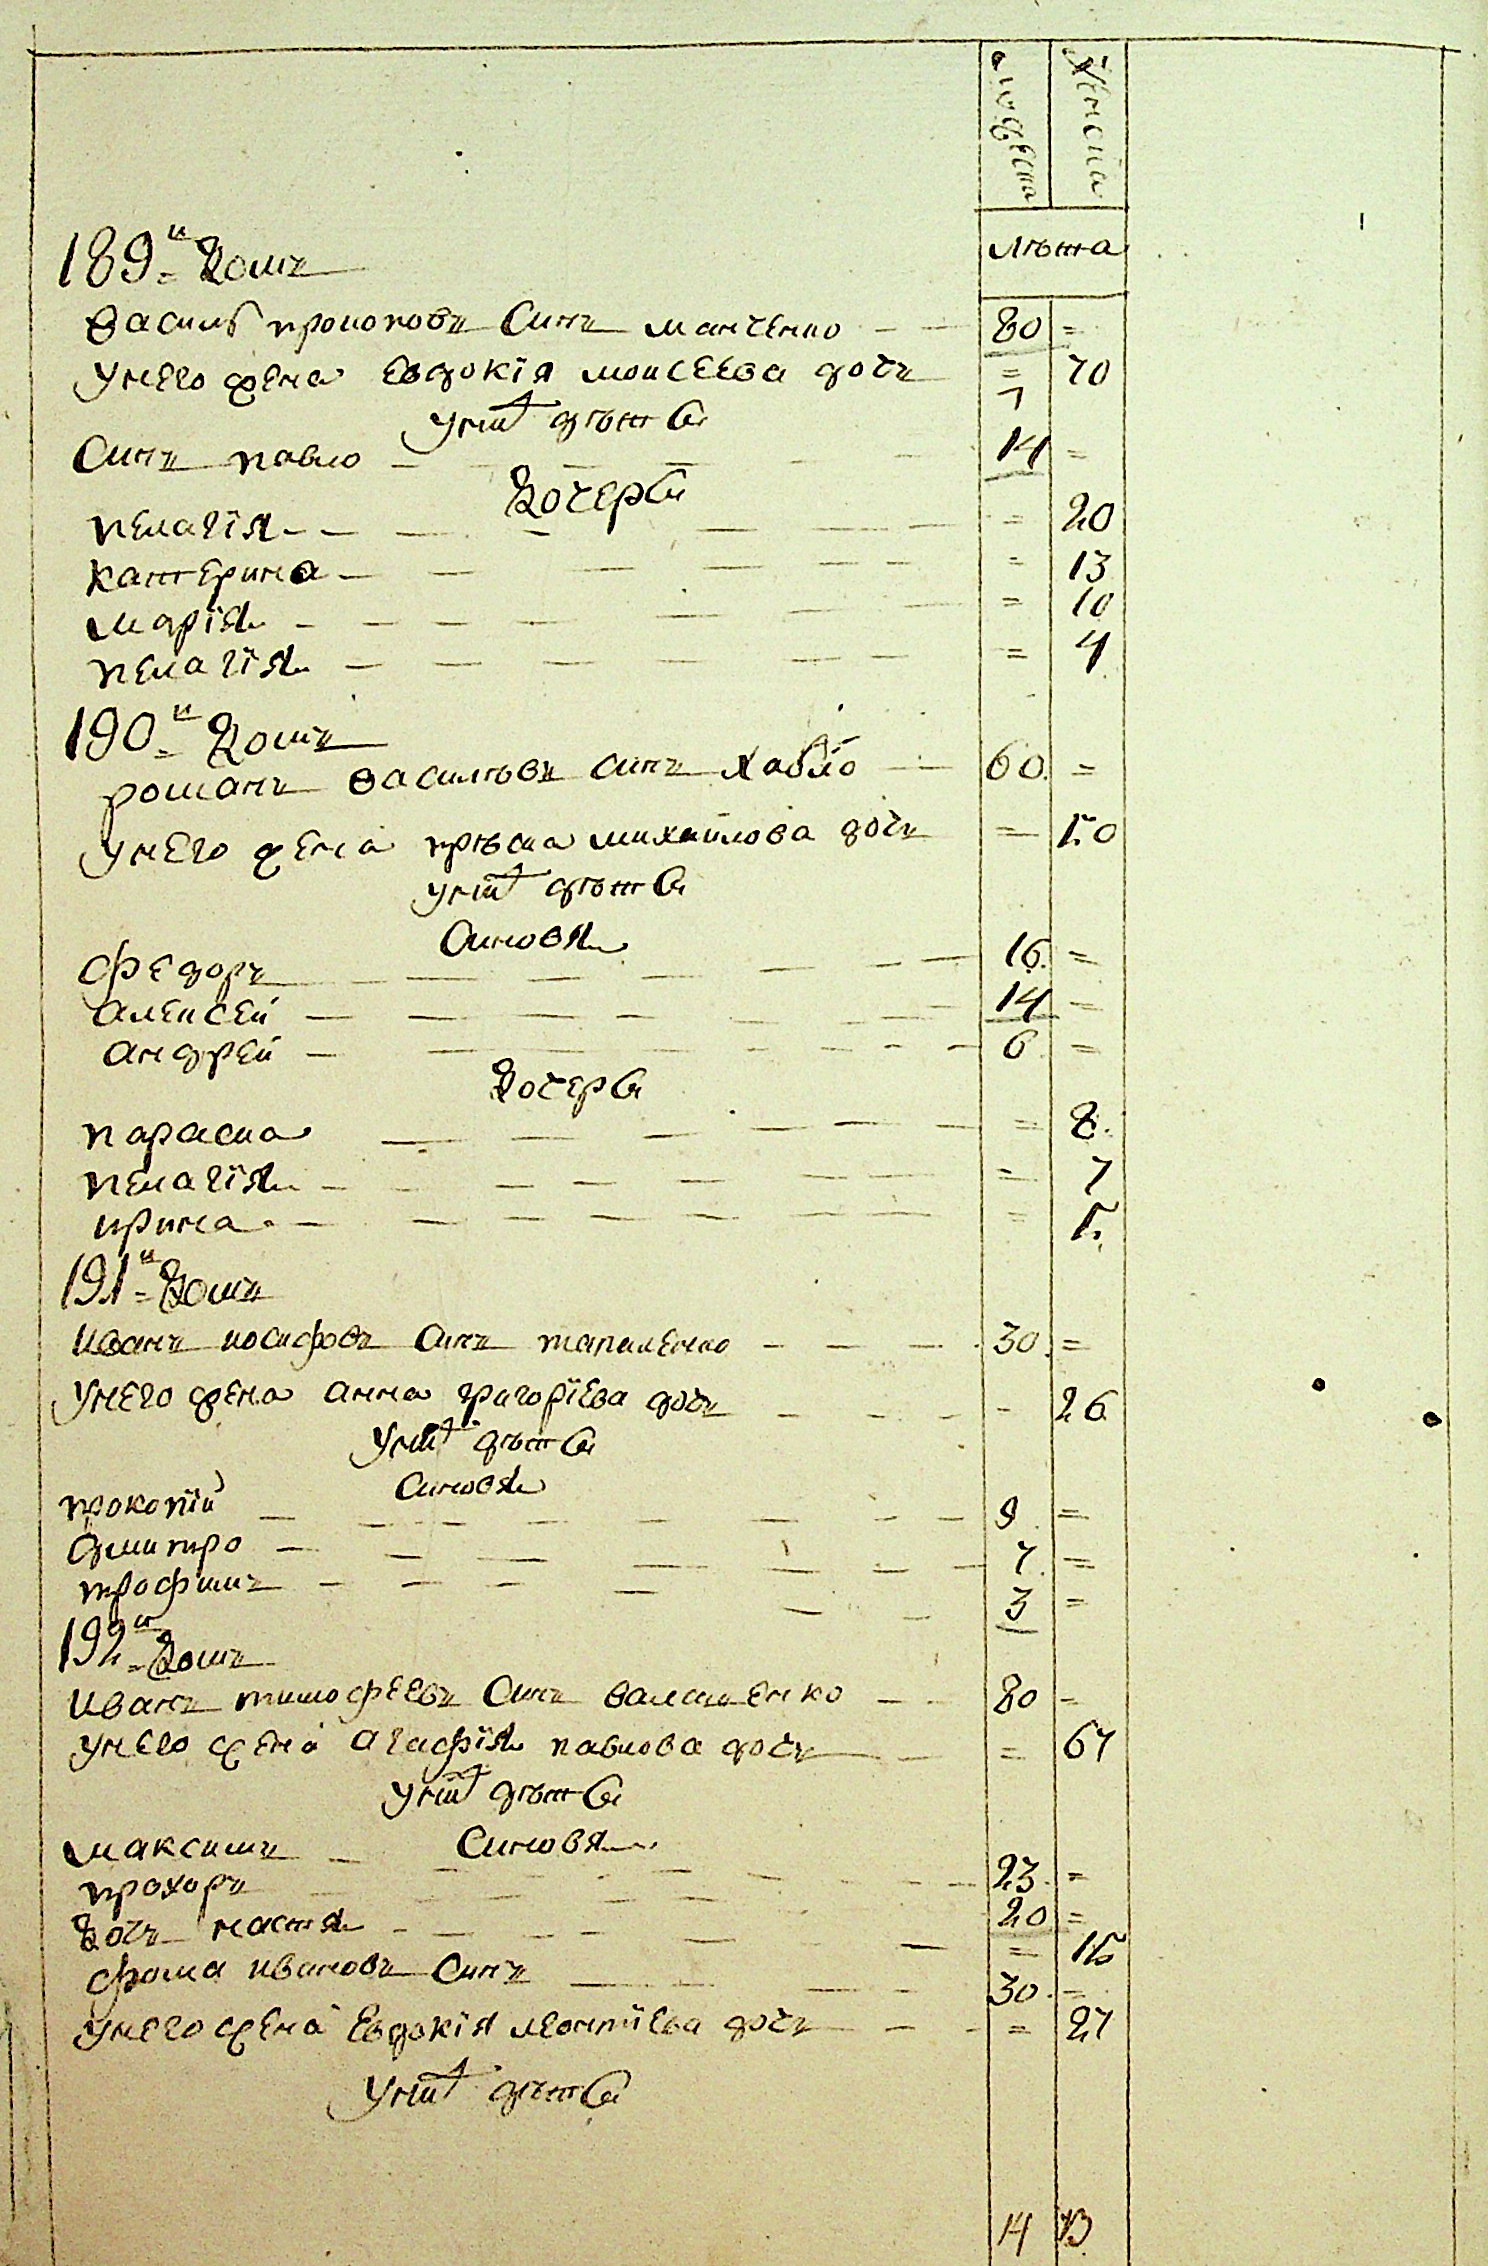 мужеска женска
лѣта
189й Домъ
Василь прокоповъ Синъ манченко 80 =
Унего жена Евдокія моисеева дочъ = 70
Унихъ дѣти
Синъ павло 14 =
Дочери
пелагія = 20
катерина = 13
марія = 10
пелагія = 4
190й Домъ
романъ василѣвъ синъ 60 =
Унего жена михайлова дочъ = 50
унихъ дѣти
Синовя
Федоръ 16 =
Алексей 14 =
андрей 6 =
Дочери
параска = 8
пелагія = 7
ирина = 5
191й Домъ
Иванъ иосифовъ Синъ тапиленко 30 =
Унего жена анна григоріева дочъ - 26
Унихъ дѣти
Синовя
прокопій 9 =
дмитро 7 =
трофимъ 3 =
192й Домъ
Иванъ тимофеевъ Синъ 80 =
унего жена Агафія павлова дочъ = 67
Унихъ дѣти
Синовя
максимъ 23 =
прохоръ 20 =
Дочъ настя = 15
фома ивановъ Синъ 30 =
унего жена Евдокія леонтіева дочъ = 27
Унихъ дѣти
14 13